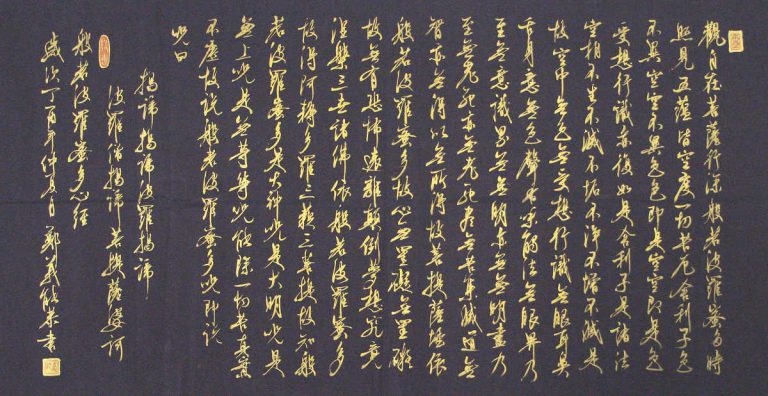 觀自在菩薩行深般若波羅蜜多時
照見五蘊皆空度一切苦厄舍利子色
不異空空不異色色即是空空即是色
受想行識亦復如是舍利子是諸法
空相不生不滅不垢不淨不增不減是
故空中無色無受想行識無眼耳鼻
舌身意無色聲香味觸法無眼界乃
至無意識界無無明亦無無明盡乃
至無老死亦無老死盡無苦集滅道無
智亦無得以無所得故菩提薩埵依
般若波羅蜜多故心無罣礙無罣礙
故無有恐怖遠離顛倒夢想究竟
涅槃三世諸佛依般若波羅蜜多
故得阿耨多羅三藐三菩提故知般
若波羅蜜多是大神咒是大明咒是
無上咒是無等等咒能除一切苦真實
不虛故說般若波羅蜜多咒即說
咒曰
揭諦揭諦波羅揭諦
波羅僧揭諦菩提薩婆訶
般若波羅蜜多心經
歲次丁酉年仲夏月鄭義恭書